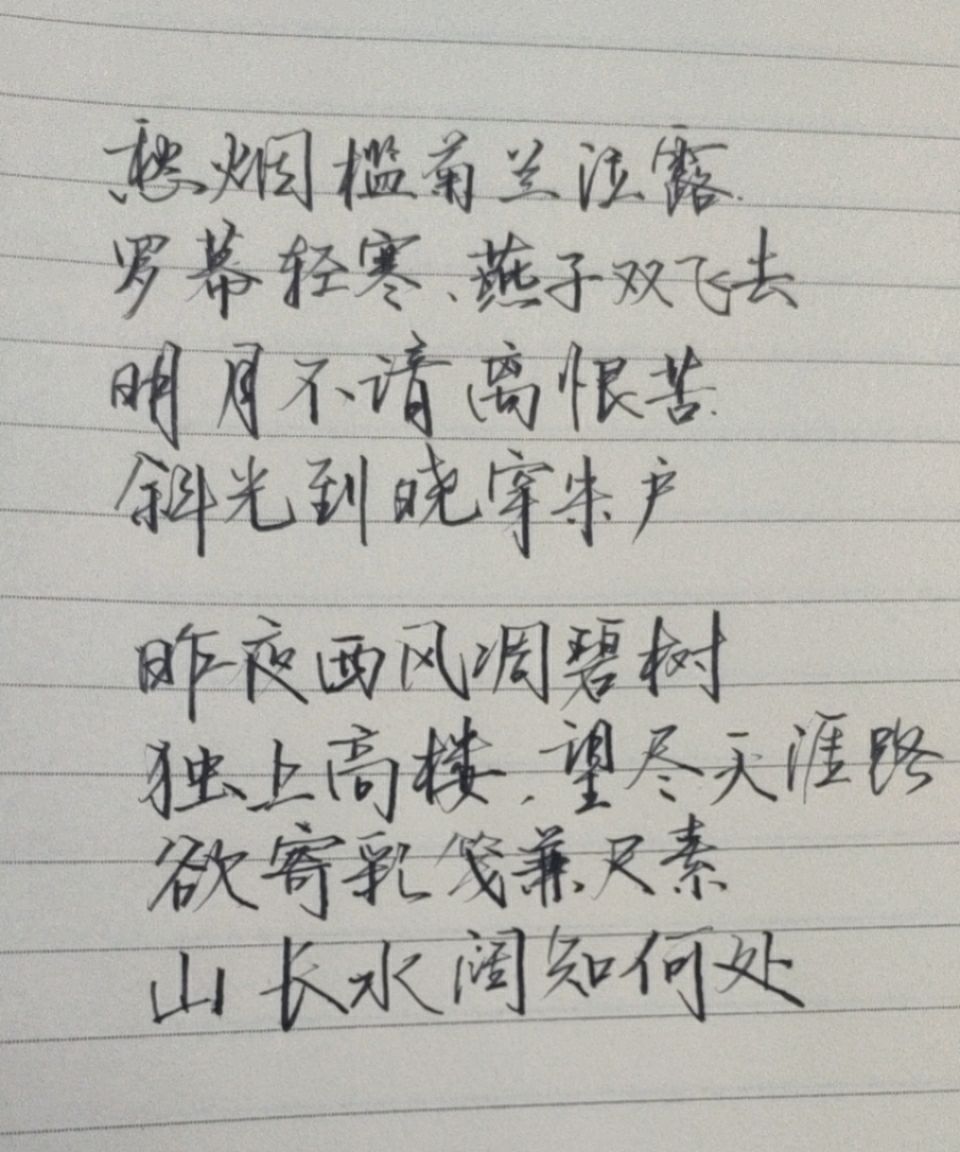 愁烟槛菊兰泣露.
罗幕轻寒、燕子双飞去
明月不请离恨苦.
斜光到晓穿朱户
昨夜西风凋碧树
独上高楼,望尽天涯路
欲寄彩笺兼尺素
山长水阔知何处